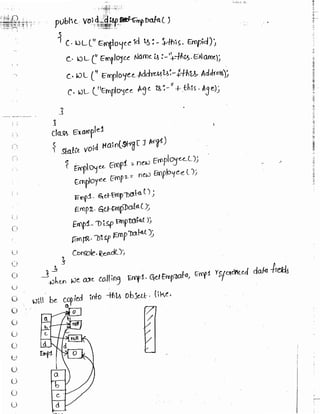 public void dispEmpData( )
{
C.WL("Employee id is:- "+this.Empid);
C.WL("Employee Name is :-"+this.EName);
C.WL("Employee Address is:-"+this.Address);
C.WL("Employee Age is :-"+this.Age);
}
}
class Example1
{ static void Main(string [ ] Args)
{ Employee Emp1 = new Employee( );
Employee Emp2 = new Employee( );
Emp1.GetEmpData( );
Emp2.GetEmpData( );
Emp1.DispEmpData( );
Emp2.Disp EmpData( );
Console.ReadK( );
}
}
}
when we are calling Emp1.GetEmpData, Emp1 data fields
will be copied into this object. like.
a
a 0
b null
c
d null
Emp1 d 0
a
b
c
d